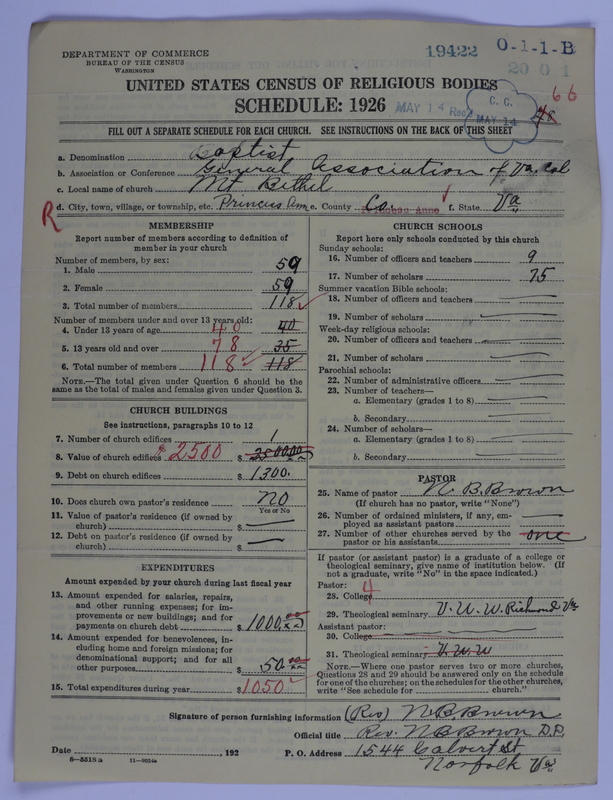 DEPARTMENT OF COMMERCE
BUREAU OF THE CENSUS
WASHINGTON
19422 O-1-1-B
20 0 1
UNITED STATES CENSUS OF RELIGIOUS BODIES
SCHEDULE: 1926
MAY 14 Rec'd
C. C.
MAY 14
66
FILL OUT A SEPARATE SCHEDULE FOR EACH CHURCH. SEE INSTRUCTIONS ON THE BACK OF THIS SHEET
a. Denomination Baptist
b. Association or Conference General Association of Va. Col
c. Local name of church Mt Bethel
d. City, town, village, or township, etc. Princess Ann e. County Co. Princess Anne f. State Va
R
MEMBERSHIP
Report number of members according to definition of
member in your church
Number of members, by sex:
1. Male 59
2. Female 59
3. Total number of members 118
Number of members under and over 13 years old:
4. Under 13 years of age 40 40
5. 13 years old and over 78 35
6. Total number of members 118 118
NOTE.—The total given under Question 6 should be the
same as the total of males and females given under Question 3.
CHURCH BUILDINGS
See instructions, paragraphs 10 to 12
7. Number of church edifices 1
8. Value of church edifices $ 2500 $
9. Debt on church edifices $ 1300.
10. Does church own pastor's residence NO
Yes or No
11. Value of pastor's residence (if owned by
church) $
12. Debt on pastor's residence (if owned by
church) $
EXPENDITURES
Amount expended by your church during last fiscal year
13. Amount expended for salaries, repairs,
and other running expenses; for im-
provements or new buildings; and for
payments on church debt $ 1000.
14. Amount expended for benevolences, in-
cluding home and foreign missions; for
denominational support; and for all
other purposes $ 50.
15. Total expenditures during year $ 1050
CHURCH SCHOOLS
Report here only schools conducted by this church
Sunday schools:
16. Number of officers and teachers 9
17. Number of scholars 75
Summer vacation Bible schools:
18. Number of officers and teachers
19. Number of scholars
Week-day religious schools:
20. Number of officers and teachers
21. Number of scholars
Parochial schools:
22. Number of administrative officers
23. Number of teachers—
a. Elementary (grades 1 to 8)
b. Secondary
24. Number of scholars—
a. Elementary (grades 1 to 8)
b. Secondary
PASTOR
25. Name of pastor N. B. Brown
(If church has no pastor, write "None")
26. Number of ordained ministers, if any, em-
ployed as assistant pastors
27. Number of other churches served by the
pastor or his assistants one
If pastor (or assistant pastor) is a graduate of a college or
theological seminary, give name of institution below. (If
not a graduate, write "No" in the space indicated.)
Pastor:
28. College 4
29. Theological seminary V. U. W. Richmond Va
Assistant pastor:
30. College
31. Theological seminary V. U. W
NOTE.—Where one pastor serves two or more churches,
Questions 28 and 29 should be answered only on the schedule
for one of the churches; on the schedules for the other churches,
write "See schedule for church."
Signature of person furnishing information (Rev) N. B. Brown
Official title Rev. N B Brown D.D.
Date , 192 P. O. Address 1544 Calvert St
8—5518 a 11—9024a Norfolk Va